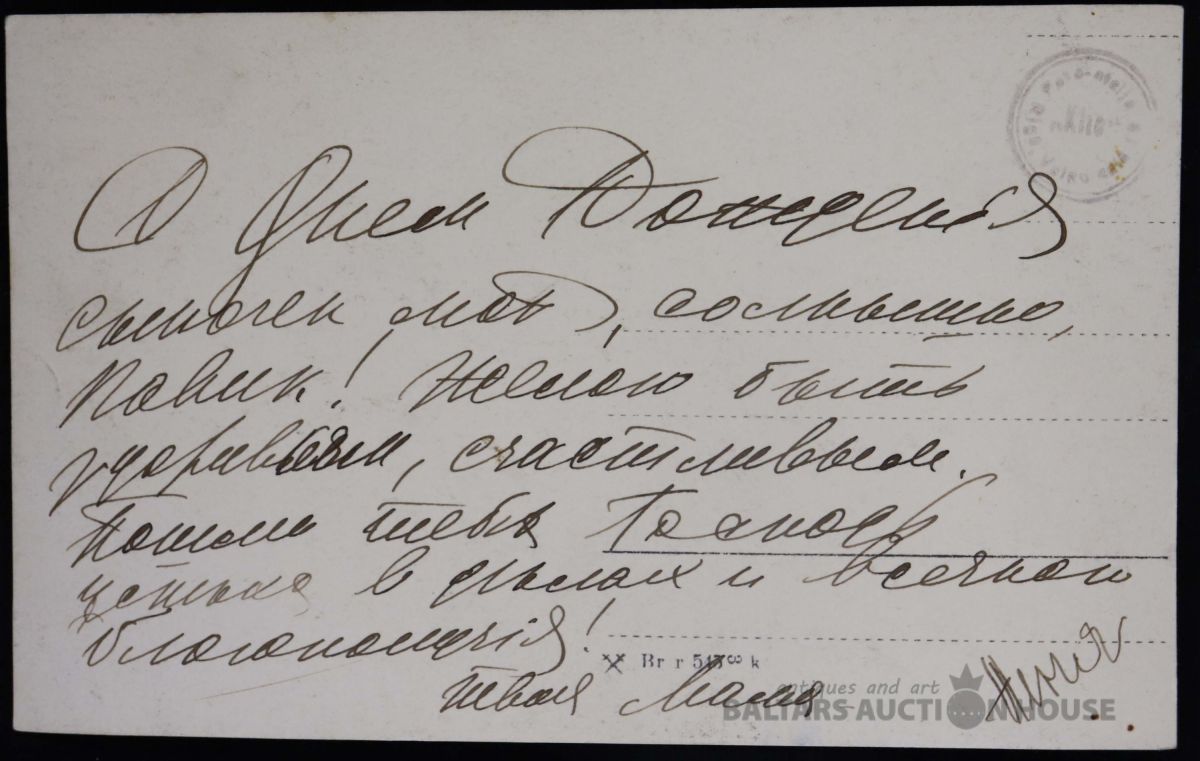 С Днем Рождения
сыночек мой, солнышко,
Павик! Желаю быть
здоровым, счастливым.
Пошли тебѣ Господь
успѣха в дѣлах и всячкого
благополучія!
твоя Мама
Br r 5173 k
antiques and art
BALTARS AUCTION HOUSE